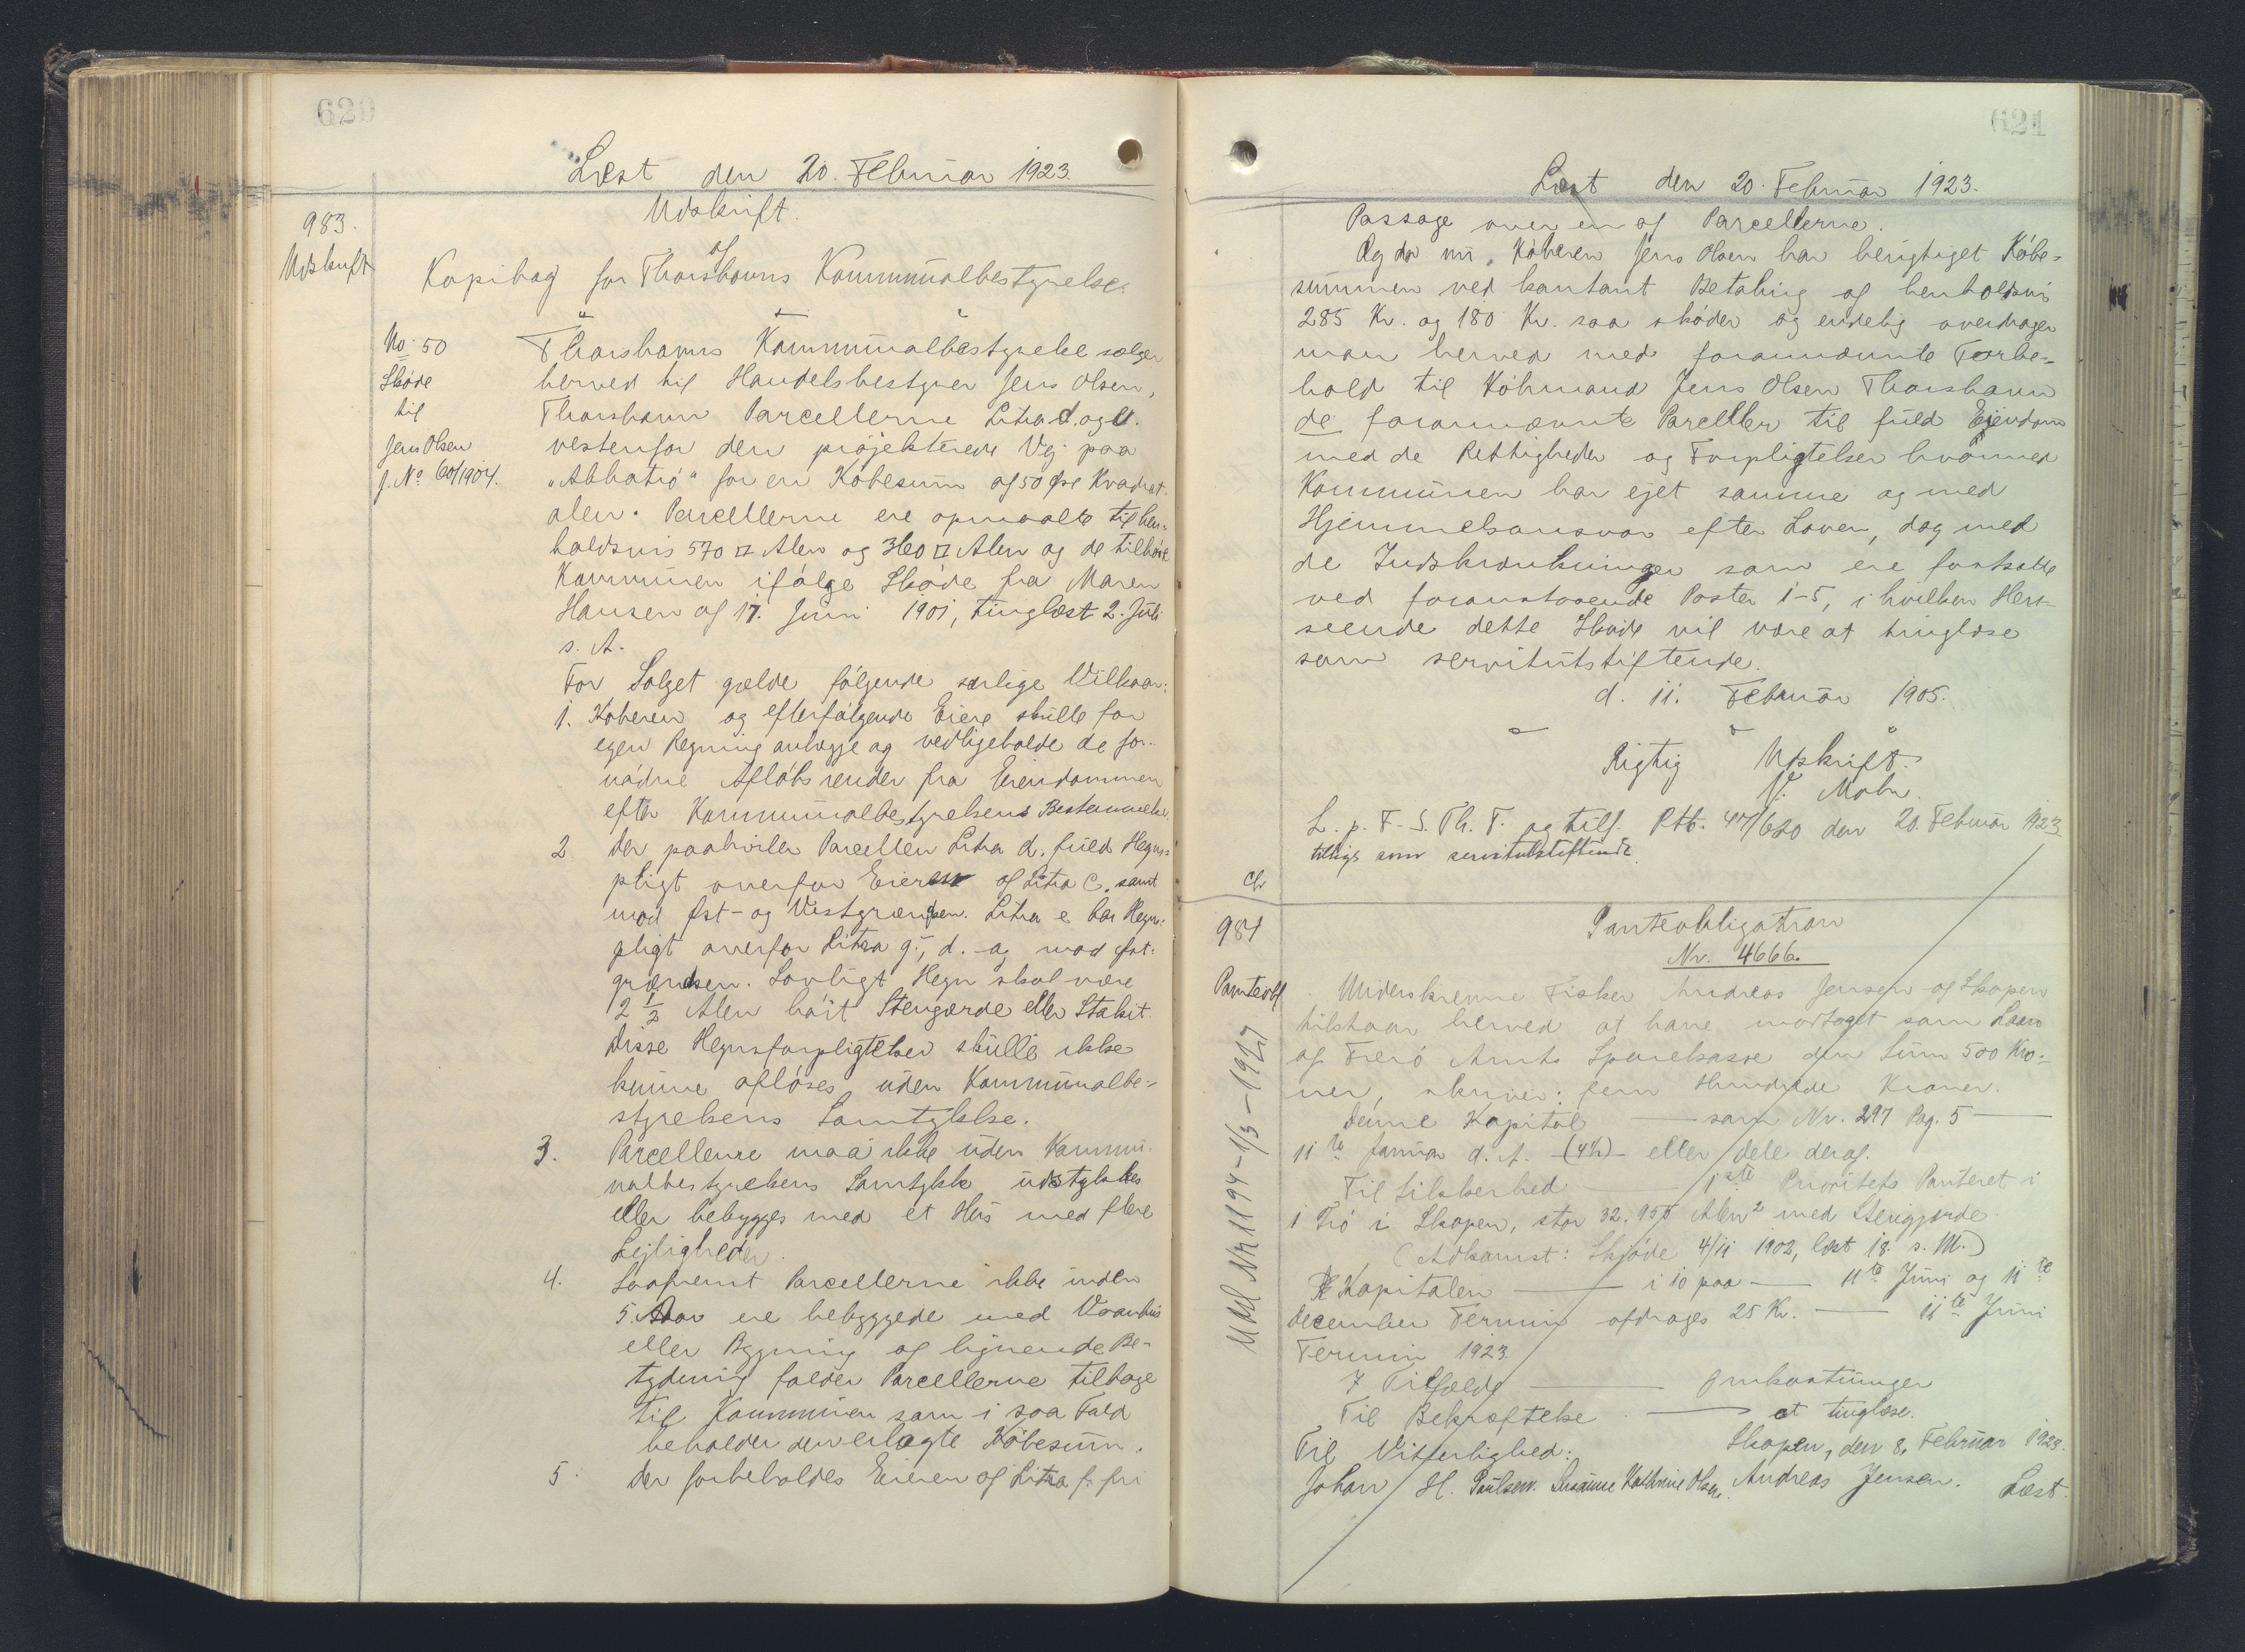 620
Læst den 20. Februar 1923.
983.
Udskrift
Udskrift.
af
Kopibog for Thorshavns Kommunalbestyrelse.
No. 50
Skøde
til
Jens Olsen
J. No 60/1904.
Thorshavns Kommunalbestyrelse sælger
herved til Handelsbestyrer Jens Olsen,
Thorshavn Parcellerne Litra d. og e.
vestenfor den projekterede Vej paa
for en Købesum af 50 Øre Kvadrat-
alen. Parcellerne ere opmaalte til hen-
holdsvis 570 □ Alen og 360 □ Alen og de tilhøre
Kommunen ifølge Skøde fra Maren
Hansen af 17. Juni 1901, tinglæst 2. Juli
s. A.
For Salget gælde følgende særlige Vilkaar:
1. Køberen og efterfølgende Eiere skulle for
egen Regning anlægge og vedligeholde de for-
nødne Afløbsrender fra Eiendommen
efter Kommunalbestyrelsens Bestemmelse.
2 Der paahviler Parcellen Litra d. fuld Hegns-
pligt overfor Eieren af Litra c. samt
mod Øst- og Vestgrænsen. Litra e har Hegns-
pligt overfor Litra g., d. og mod Øst-
grændsen. Lovligt Hegn skal være
2 1/2 Alen høit Stengærde eller Stakit.
Disse Hegnsforpligtelser skulle ikke
kunne afløses uden Kommunalbe-
styrelsens Samtykke.
3. Parcellerne maa ikke uden Kommu-
nalbestyrelsens Samtykke udstykkes
eller bebygges med et Hus med flere
Lejligheder.
4. Saafremt Parcellerne ikke inden
5 Aar ere bebyggede med Vaanhus
eller Bygning af lignende Be-
tydning falder Parcellerne tilbage
til Kommunen som i saa Fald
beholder den erlagte Købesum.
5. Der forbeholdes Eieren af Litra f. fri
621
Læst den 20. Februar 1923.
Passage over en af Parcellerne.
Og da nu Køberen Jens Olsen har berigtiget Købe-
summen ved kontant Betaling af henholdsvis
285 Kr. og 180 Kr. saa skøder og endelig overdrager
man herved med forannævnte Forbe-
hold til Købmand Jens Olsen Thorshavn
de forannævnte Parceller til fuld Ejendom
med de Rettigheder og Forpligtelser hvormed
Kommunen har ejet samme og med
Hjemmelsansvar efter Loven, dog med
de Indskrænkninger som ere fortsatte
ved foranstaaende Poster 1-5, i hvilken Hen-
seende dette Skøde vil være at tinglæse
som servitutstiftende.
d. 11. Februar 1905.
Rigtig Udskrift.
V. Mohr.
L. p. F. S. Th. T. og tilf. Ptb. 47/620 den 20. Februar 1923
tillige som servitutstiftende.
Ch
984
Panteobl
Udsl Nr 1194 - 1/3 - 1927
Panteobligation
Nr. 4666.
Underskrevne Fisker Andreas Jensen af Skopen
tilstaar herved at have modtaget som Laan
af Færø Amts Sparekasse den Sum 500 Kro-
ner, skriver: fem Hundrede Kroner.
Denne Kapital — som Nr. 297 Pag. 5 —
11te Januar d. A. — (4½) — eller dele deraf.
Til Sikkerhed — 1ste Prioritets Panteret i
1 Trø i Skopen, stor 32.950 Alen2 med Stengjerde.
(Adkomst: Skjøde 4/11 1902, læst 18. s. M.)
Kapitalen — i 10 paa — 11te Juni og 11te
December Termin afdrages 25 Kr. — 11te Juni
Termin 1923.
I Tilfælde — Omkostninger
Til Bekræftelse — at tinglæse.
Skopen, den 8. Februar 1923.
Til Vitterlighed:
Johan H. Poulsen. Susanne Kathrine Olsen. Andreas Jensen. Læst